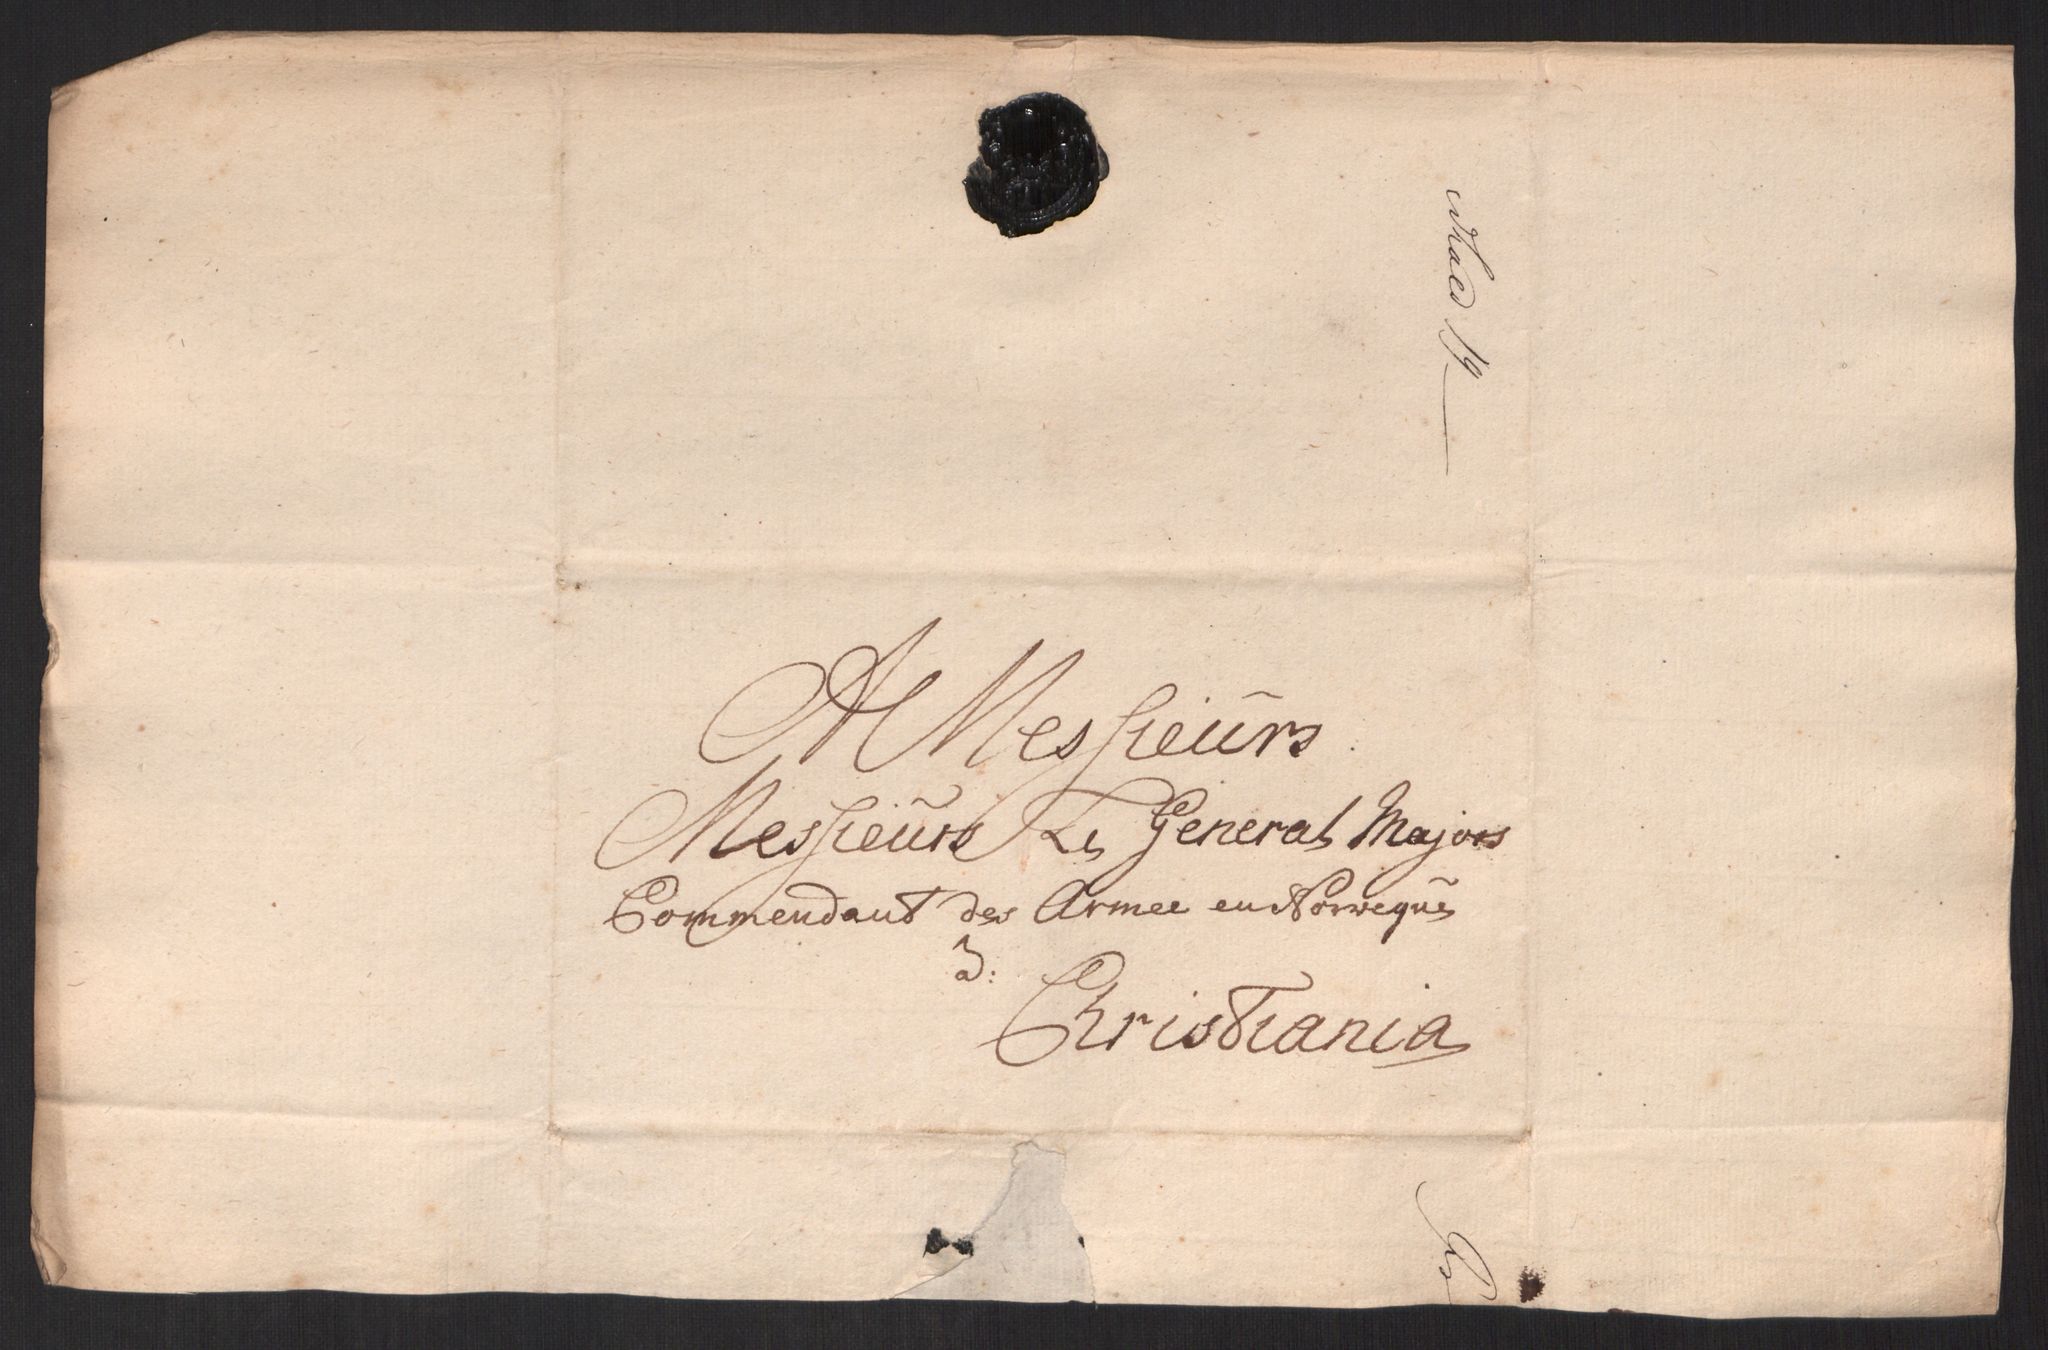 A Messieurs
Messieurs Les General Majors
Commendant des Armee en Norwegues
a:
Christiania